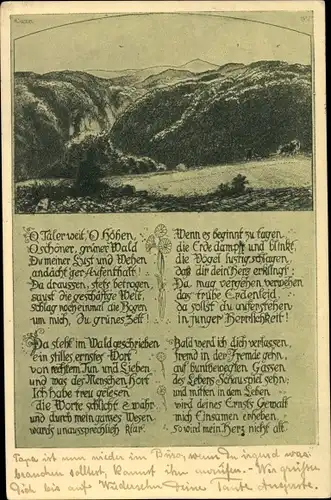 O Täler weit, O Höhen,
O schöner, grüner Wald
Du meiner Lust und Wehen
andächt'ger Aufenthalt!
Da draussen, stets betrogen,
saust die geschäftge Welt,
schlag noch einmal die Bogen
um mich, Du grünes Zelt!
Wenn es beginnt zu tagen,
die Erde dampft und blinkt,
die Vögel lustig schlagen,
daß dir dein Herz erklingt:
Da mag vergehen, verwehen
das trübe Erdenleid,
da sollst du auferstehen
in junger Herrlichkeit!
Da steht im Wald geschrieben
ein stilles, ernstes Wort
von rechtem Tun und Lieben
und was der Menschen Hort.
Ich habe treu gelesen
die Worte schlicht & wahr
und durch mein ganzes Wesen
wards unaussprechlich klar.
Bald werd ich dich verlassen,
fremd in der Fremde gehn,
auf buntbewegten Gassen
des Lebens Schauspiel sehn;
und mitten in dem Leben
wird deines Ernsts Gewalt
mich Einsamen erheben,
so wird mein Herz nicht alt.
Papa ist nun wieder im Büro, wenn Du irgend was
brauchen solltest, kannst ihn anrufen. – Wir grüßen
Dich bis aufs Wiedersehn Deine Tante Auguste.